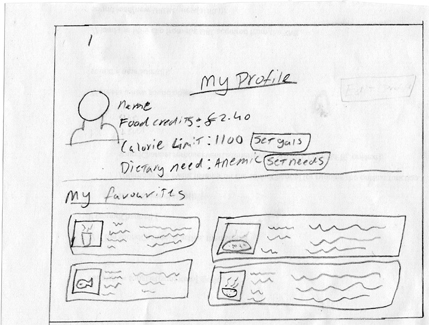 1
My Profile
Name
Food credits: £2.40
Calorie Limit: 1100 Set goals
Dietary need: Anemic Set needs
My favourites